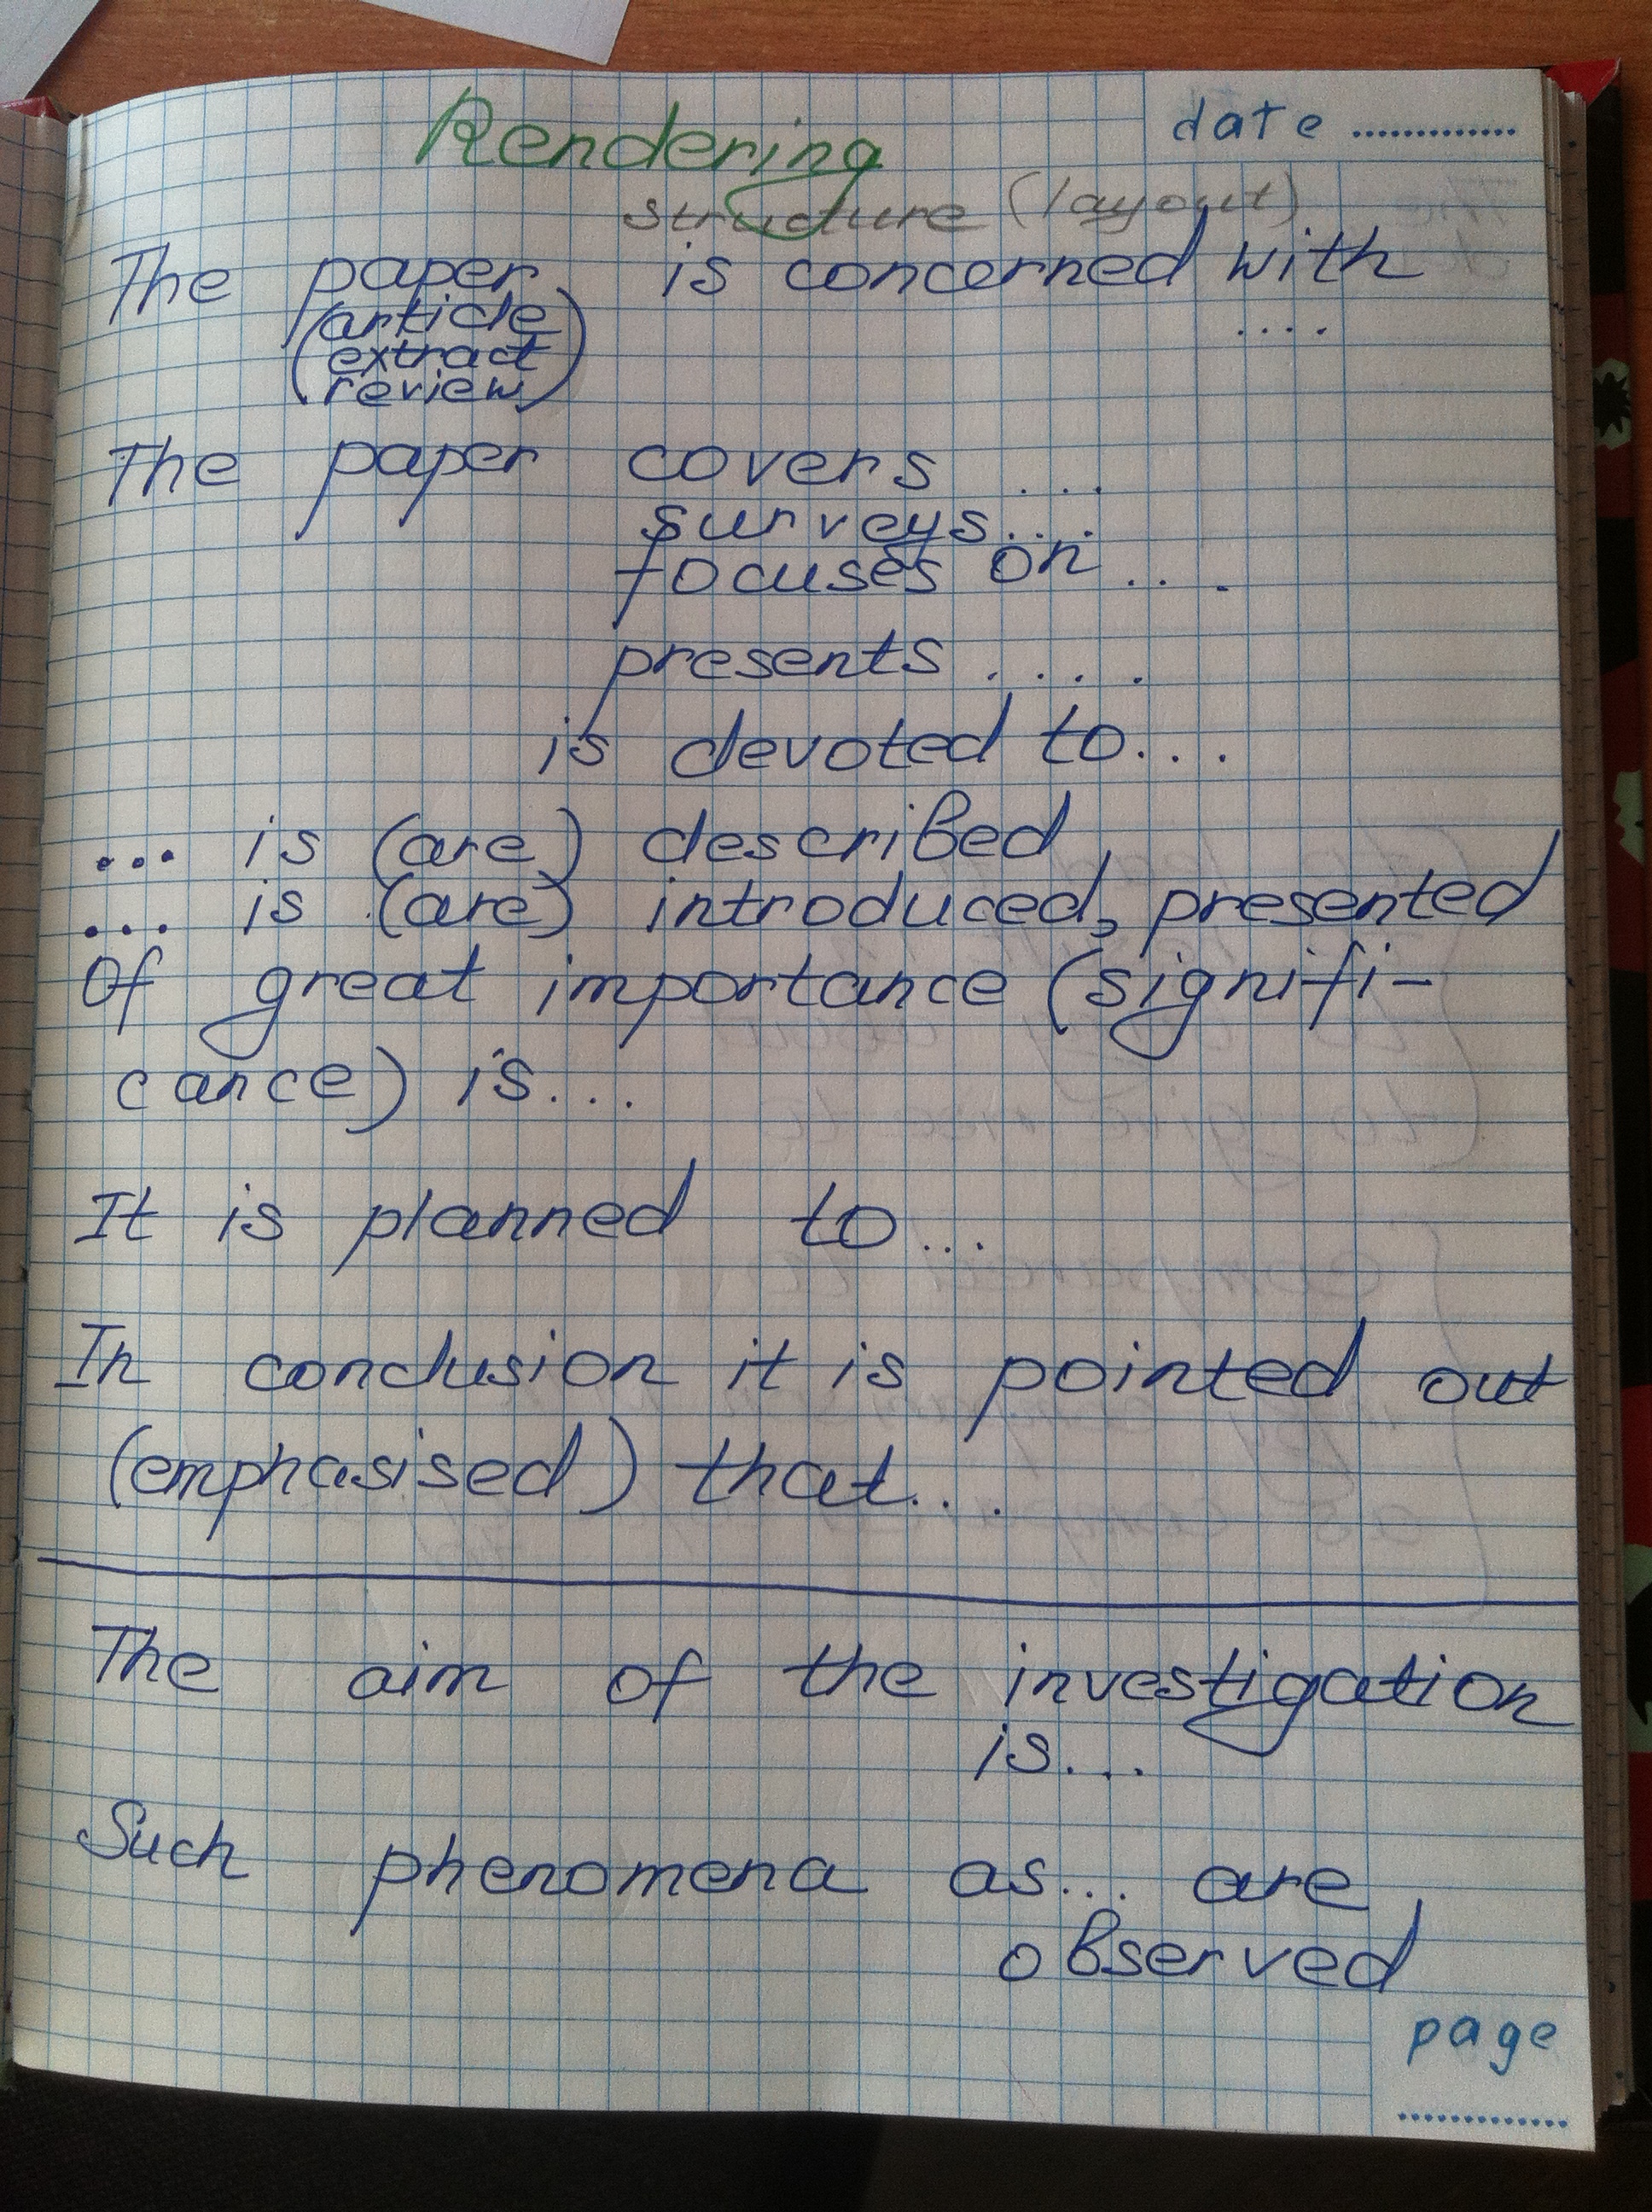 Rendering
date .............
structure (layout)
The paper is concerned with
....
(article
extract
review)
The paper covers ...
surveys....
focuses on ...
presents ....
is devoted to...
... is (are) described
... is (are) introduced, presented
Of great importance (signifi-
cance) is...
It is planned to...
In conclusion it is pointed out
(emphasised) that...
The aim of the investigation
is...
Such phenomena as... are
observed
page
.............